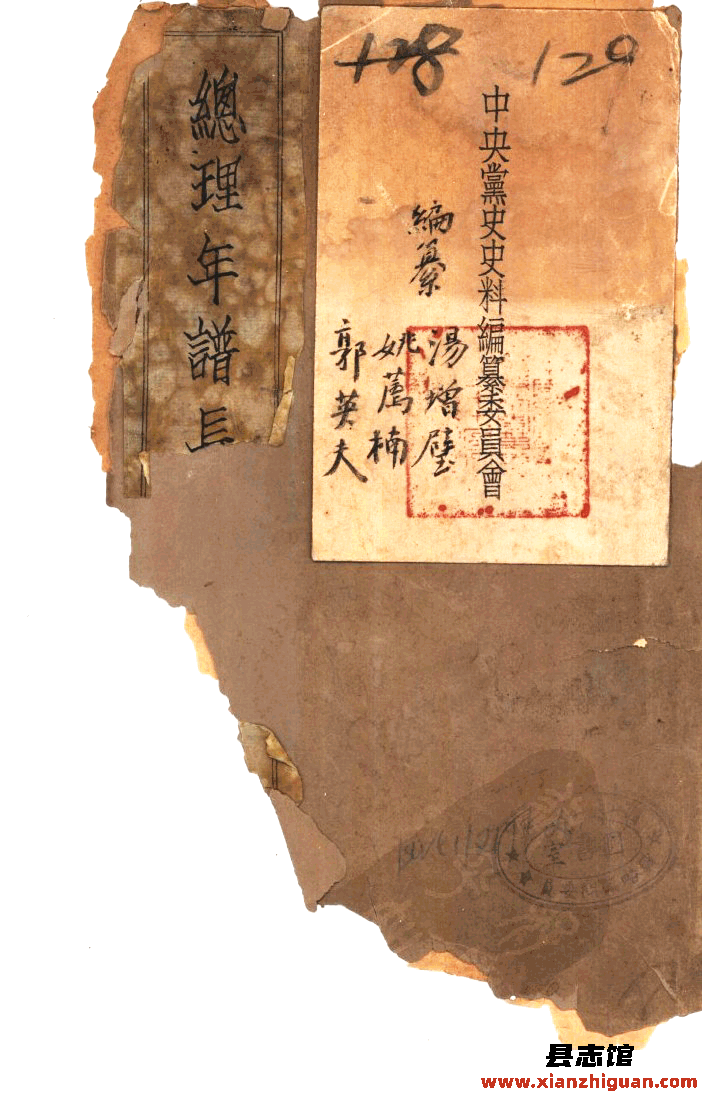 128 120
中央黨史史料編纂委員會
編纂
湯增璧
姚薦楠
郭英夫
總理年譜長
县志馆
www.xianzhiguan.com